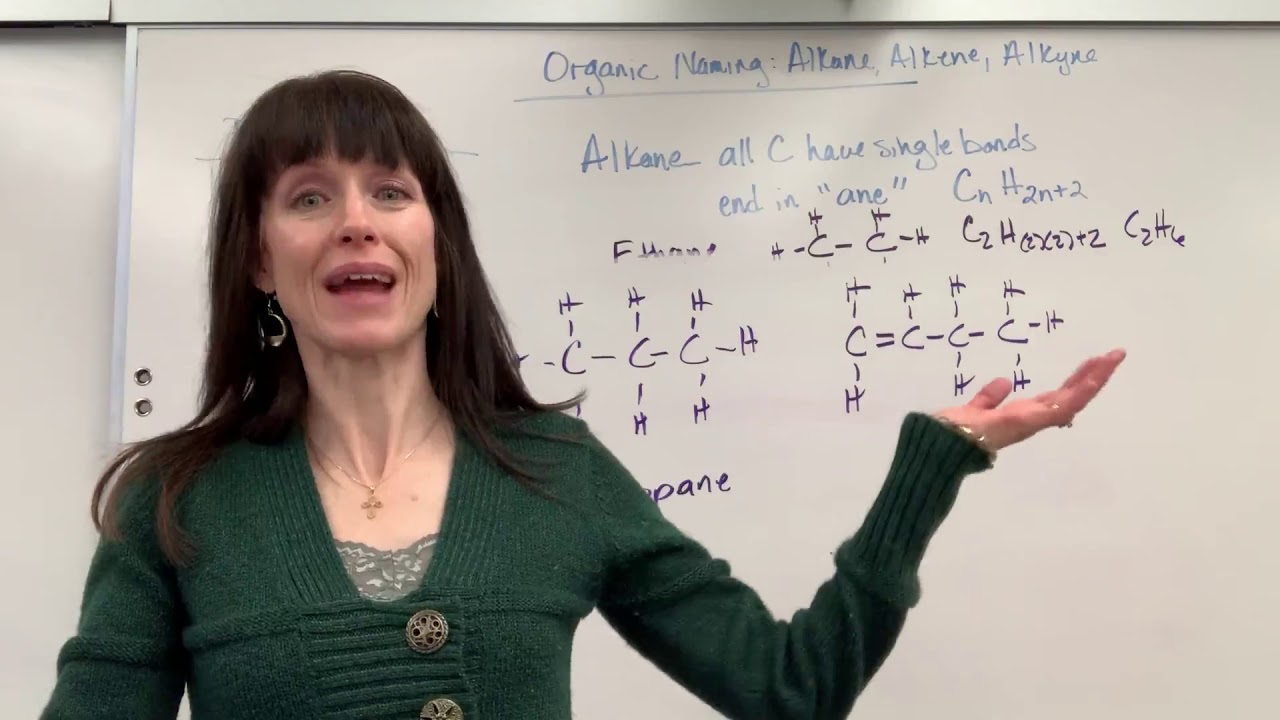 Organic Naming: Alkane, Alkene, Alkyne
Alkane all C have single bonds
end in "ane" CnH2n+2
Ethane
H H
H-C-C-H C2H(2)(2)+2 C2H6
H H H
-C-C-C-H
H H
H H H H
C=C-C-C-H
H H H
pane